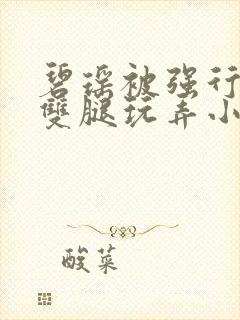 碧瑶被强行
雙腿玩弄小
酸菜